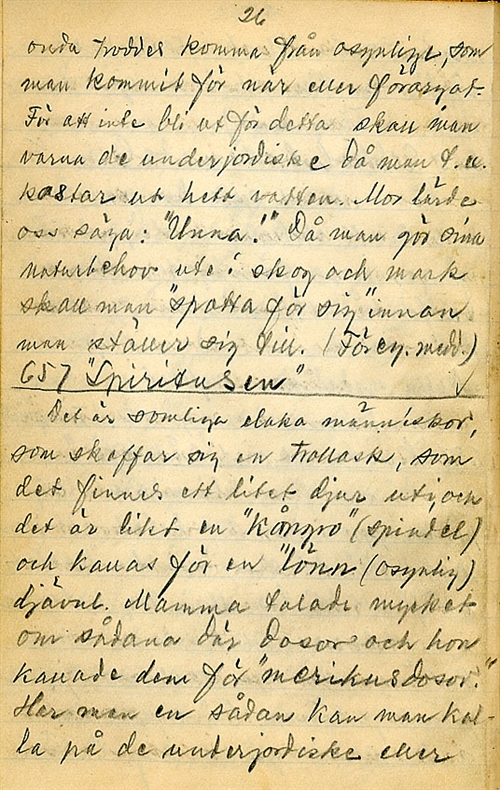 26
onda troddes komma från osynligt, som
man kommit för när eller förargat.
För att inte bli ut för detta skall man
varna de underjordiske då man t. ex.
kastar ut hett vatten. Mor lärde
oss säga: "Unna!" Då man gör sina
naturbehov ute i skog och mark
skall man "spotta för sig" innan
man ställer sig till. (Förеg. medd.)
657 "Spiritusen"
Det är somliga elaka människor,
som skaffar sig en trollask, som
det finnes ett litet djur uti, och
det är likt en "kångro" (spindel)
och kallas för en "lönn (osynlig)
djävul. Mamma talade mycket
om sådana där dosor och hon
kallade dem för "merikusdosor."
Har man en sådan kan man kal-
la på de underjordiske eller